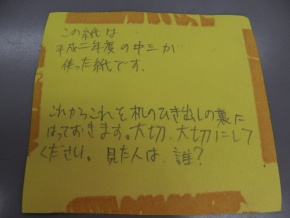 この紙は
平成二年度の中三が
使った紙です。
これからこれを机のひき出しの裏に
はっておきます。大切、大切にして
ください。見た人は、誰?